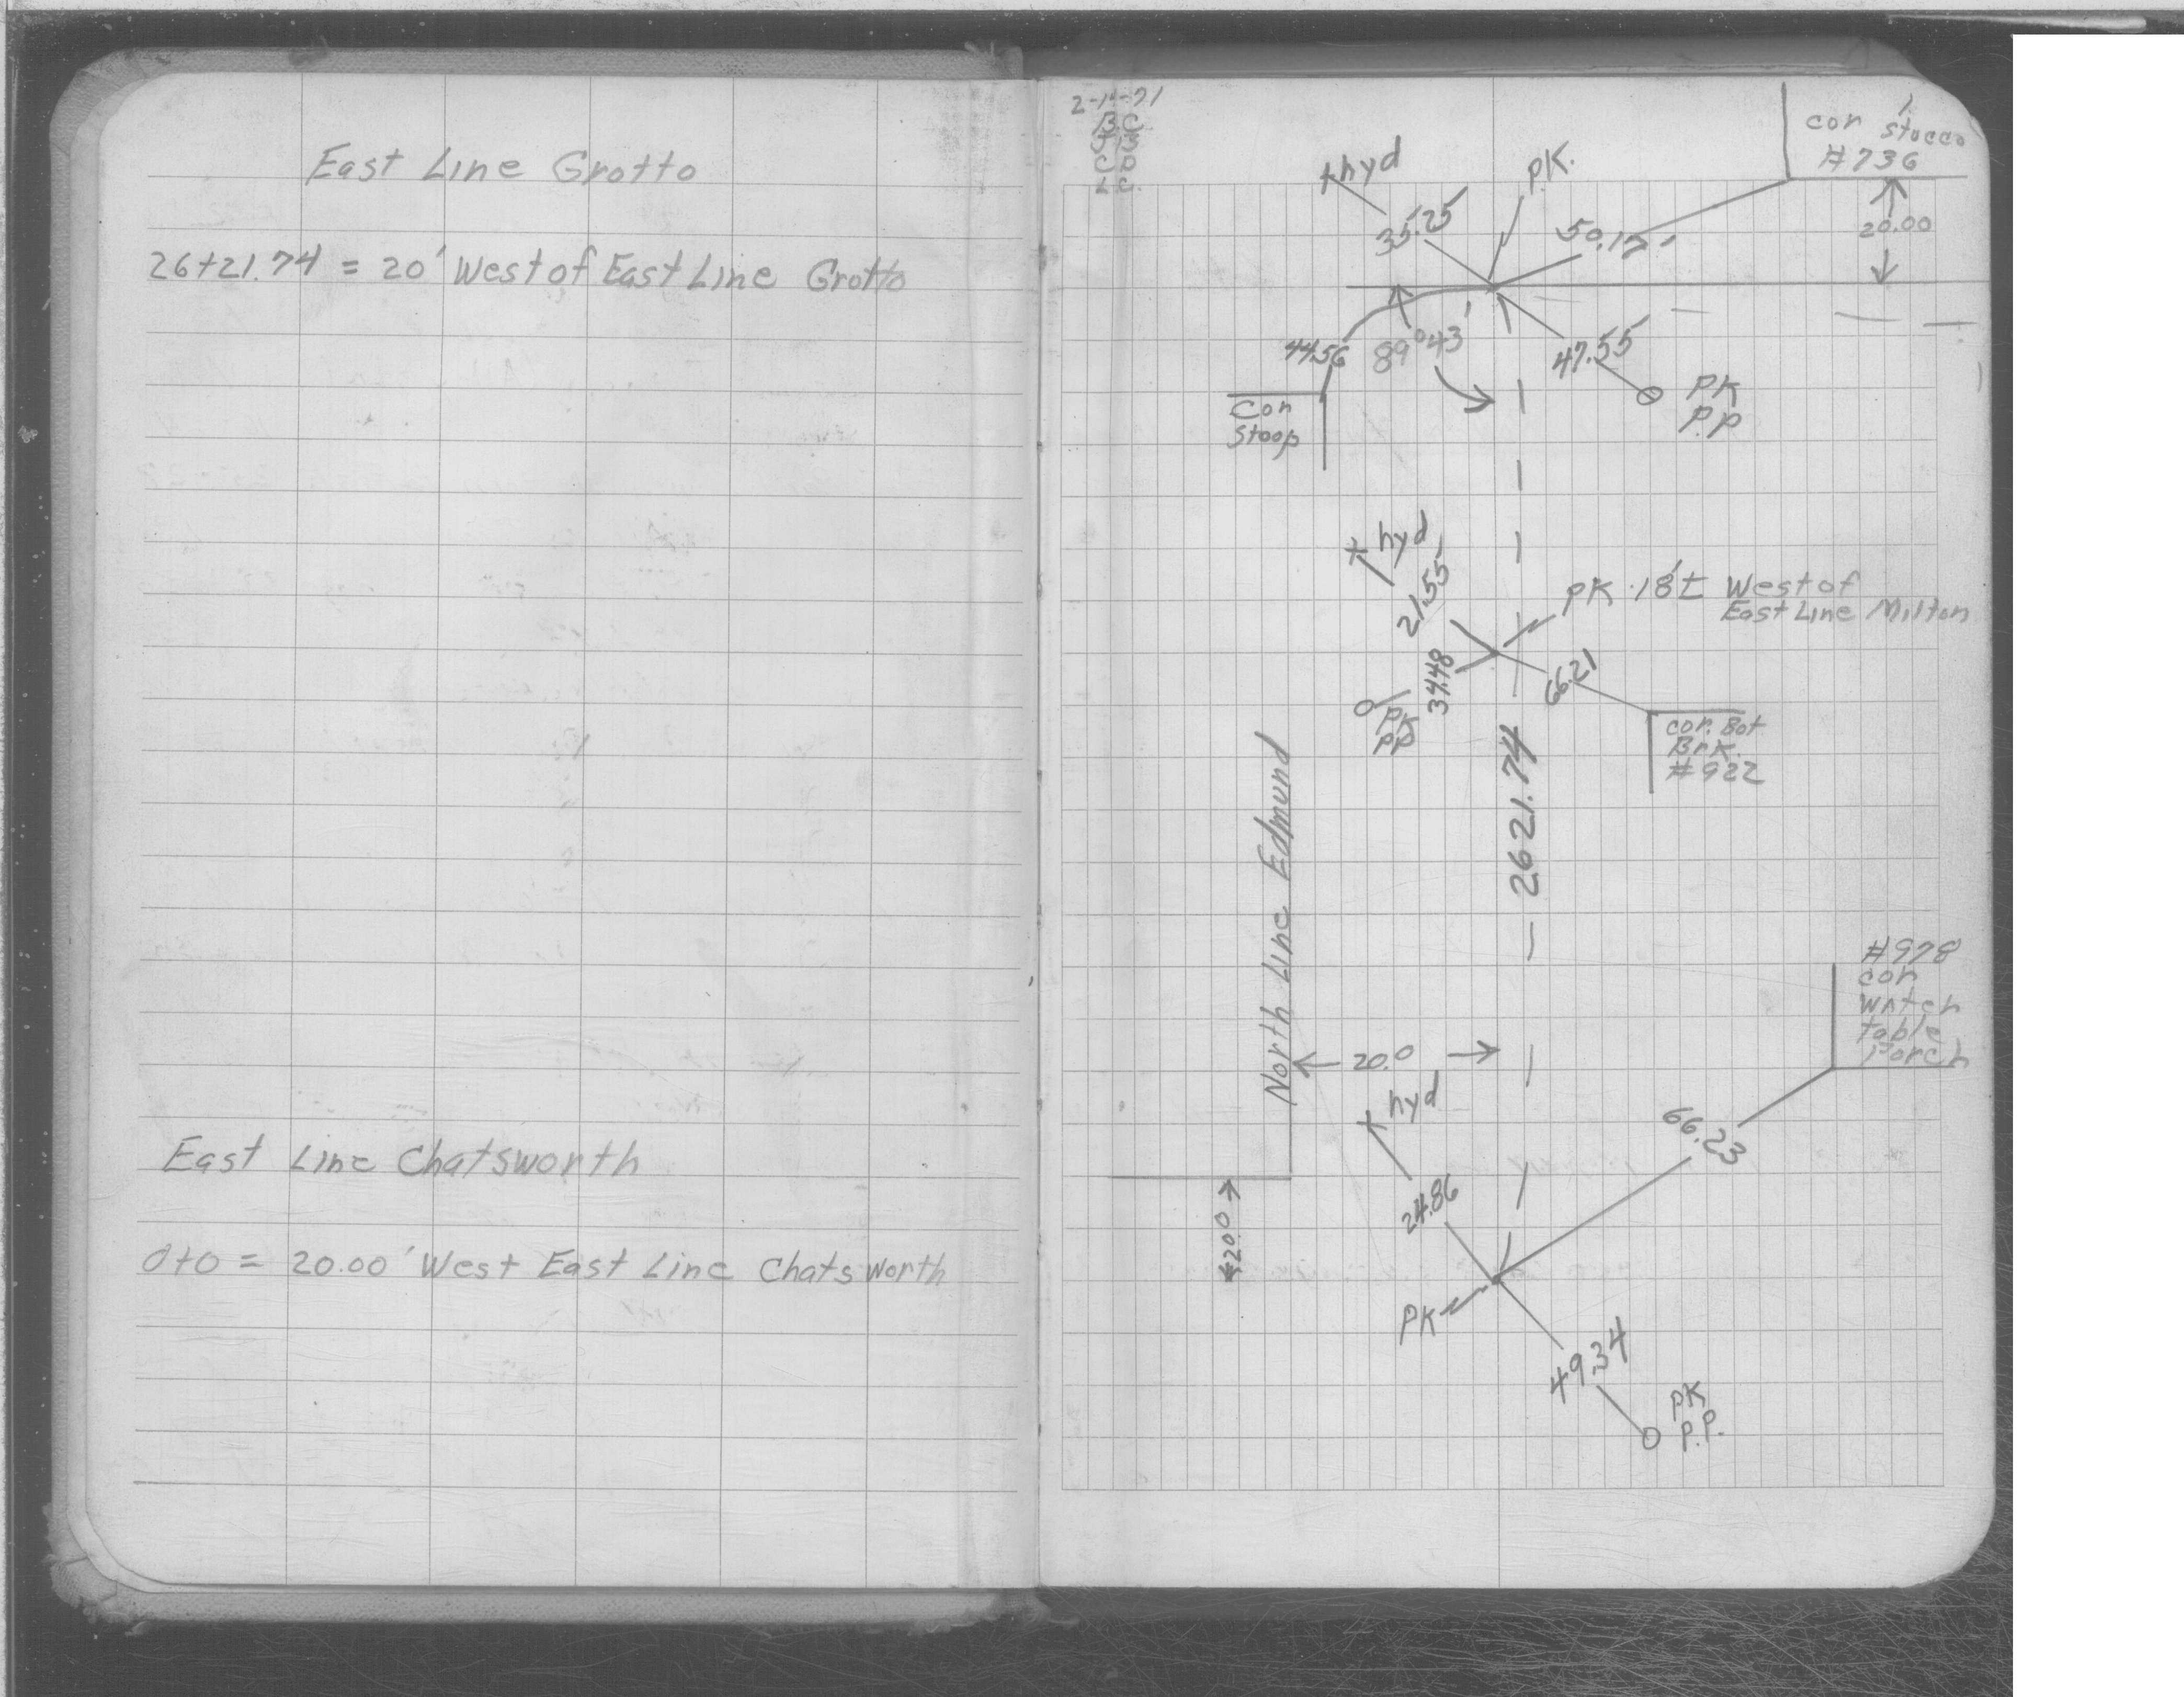 East Line Grotto
26+21.74 = 20' West of East Line Grotto
East Line Chatsworth
0+0 = 20.00' West East Line Chatsworth
B C
J B
C O
L C.
1
cor stucco
#736
hyd
P.K.
35.25
50.17'
20.00
44.56
89°43'
47.55
PK
P.P
Cor
Stoop
hyd
21.55
PK 18'± West of
East Line Milton
34.48
66.21
PK
PP
cor. Bot
Brk.
#922
2621.74
North Line Edmund
#978
cor
water
table
Porch
20.0
hyd
66.23
24.86
20.0
PK
49.34
PK
P.P.